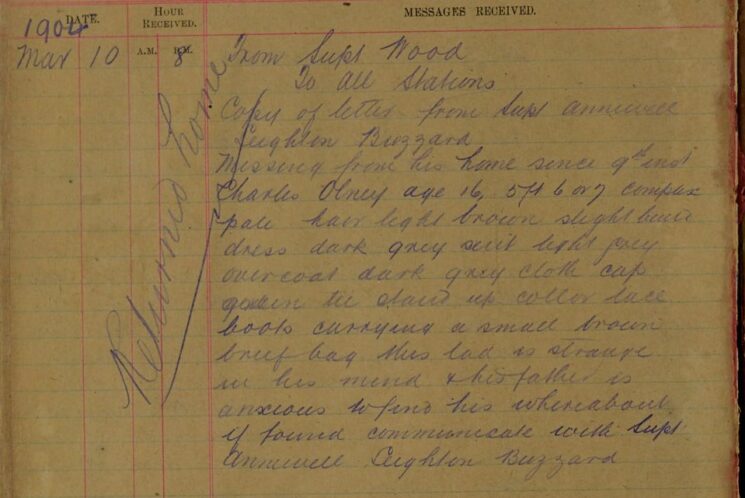 1904
DATE. HOUR RECEIVED. MESSAGES RECEIVED.
Mar 10 A.M. P.M. 8 From Supt Wood
To All Stations
Copy of letter from Supt
Leighton Buzzard
Missing from his home since 9th inst
Charles Olney age 16, 5ft 6 or 7 complex
pale hair light brown slight build
dress dark grey suit light grey
overcoat dark grey cloth cap
green tie stand up collor lace
boots carrying a small brown
brief bag this lad is strange
in his mind & his father is
anxious to find his whereabout
if found communicate with Supt
Leighton Buzzard
Returned home